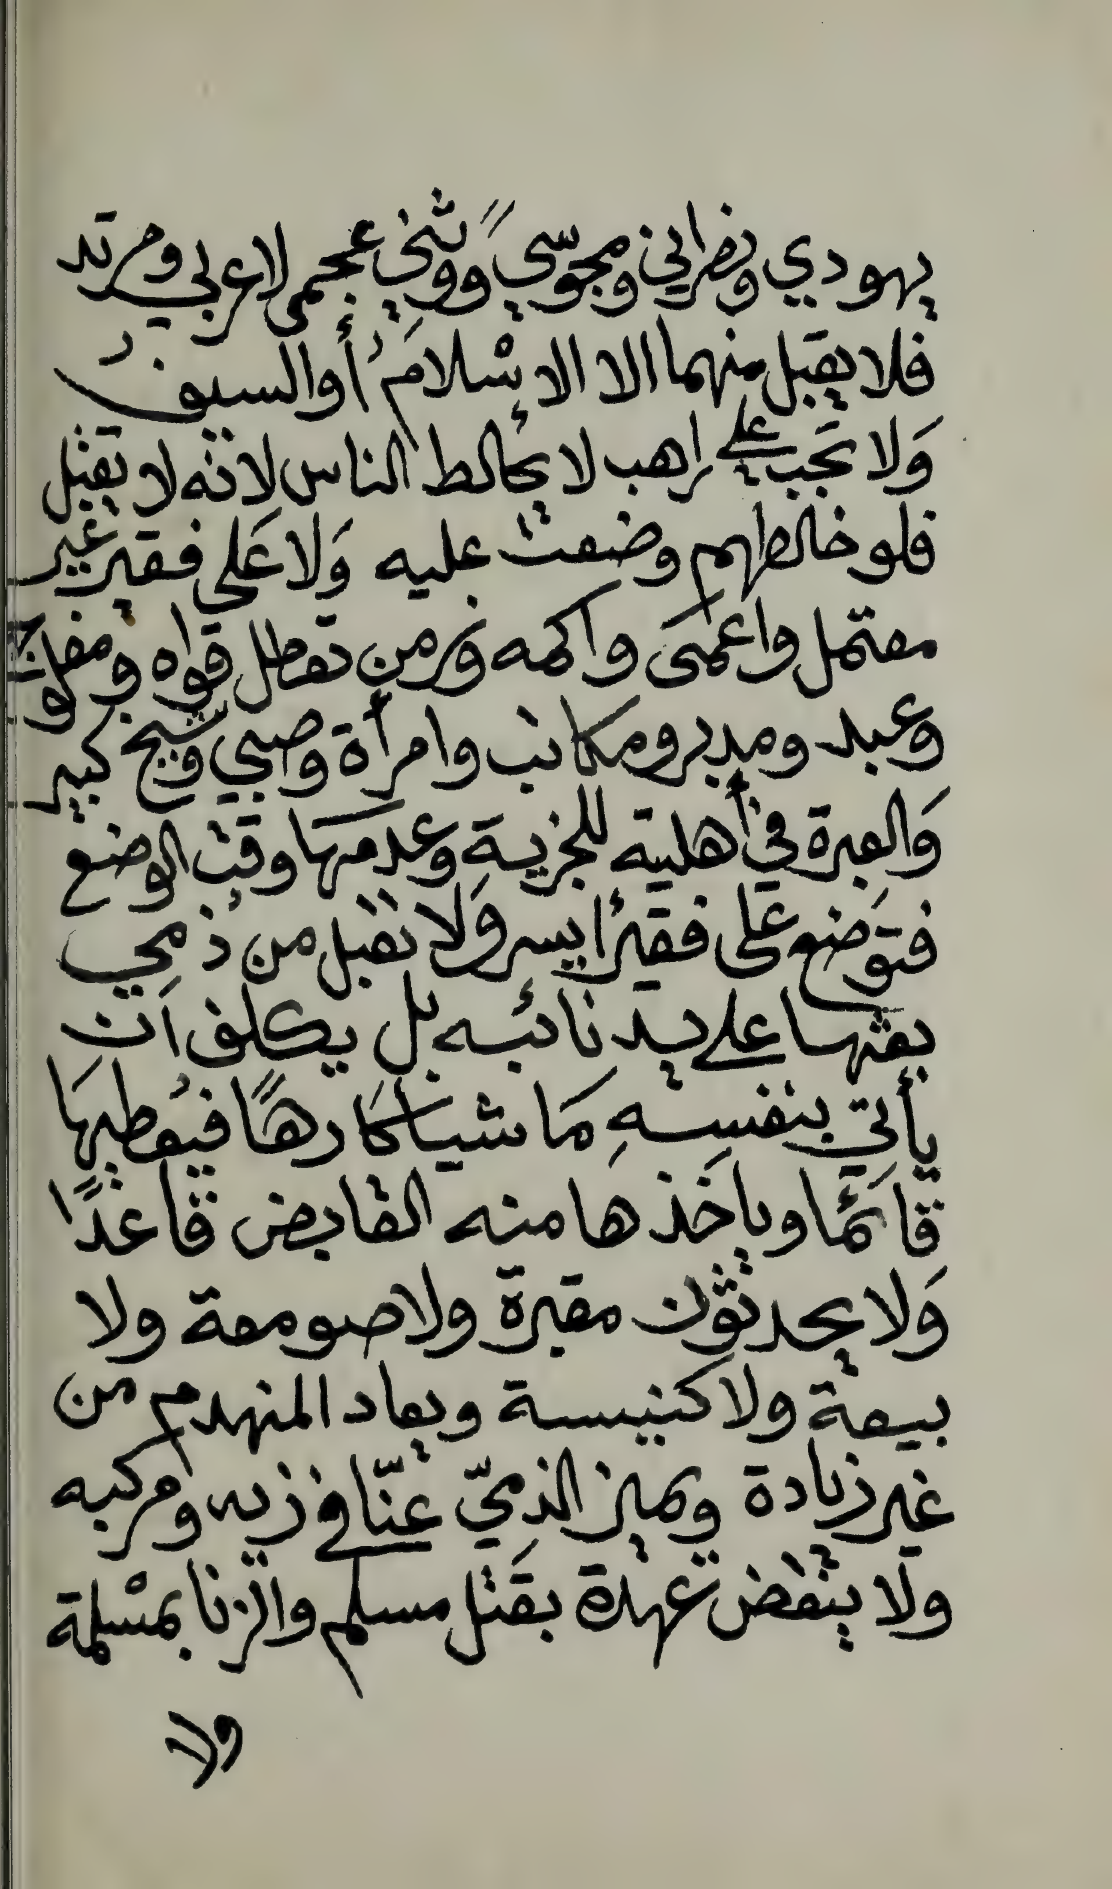 يهودي ونصراني ومجوسي ووثني عجمي لا عربي ومرتد
فلا يقبل منهما الا الاسْلامُ أو السيوف
وَلا تجَب على راهب لا يخالط الناس لانه لا تقتل
فلو خالطهم وضعت عليه وَلا عَلي فقير غير
معتمل واعمَى واكمه وزمن تعطل قواه ومفلوج
وعبد ومدبر ومكاتب وامرأة وصبي وشيخ كبير
وَالعبرة في أهلية للجزية وعدمها وقت الوضع
فتوَضع عَلى فقير أيسر وَلا تقبل من ذمي
بعثها على يد نائبه بل يكلف ان
يأتي بنفسهِ مَا شيا كارهًا فيعُطيهَا
قائما وياخَذ ها منه القابض قاعدًا
وَلا يحدثون مقبرة ولا صومعة ولا
بيعة ولا كنيسة ويعاد المنهدم من
غير زيادة ويميز الذميّ عنّا في زيه ومركبه
ولا ينقض عهدة بقَتل مسلم والزنا بمسْلمة
ولا